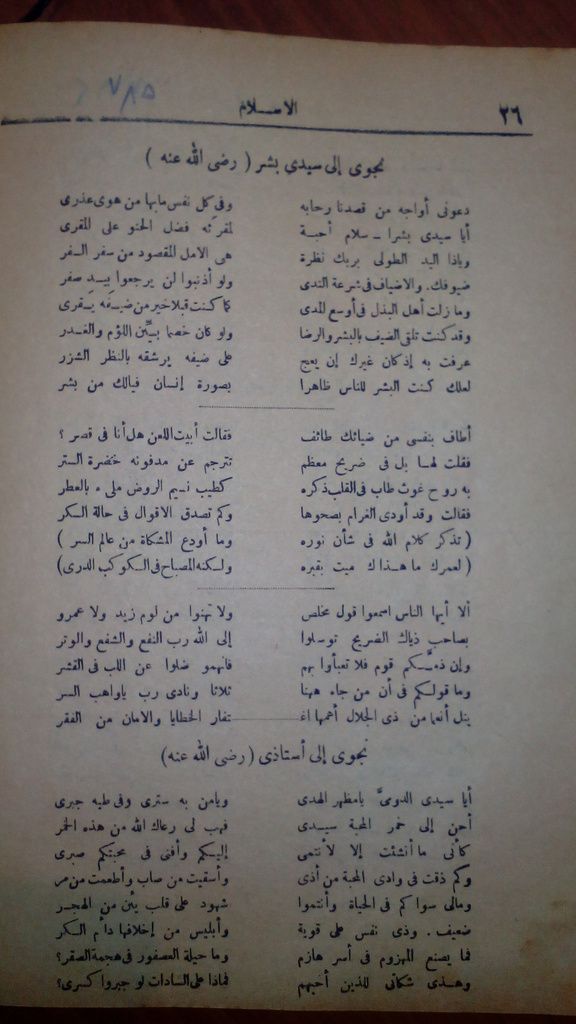 ٧٨٥
٢٦ الاسلام
نجوى إلى سيدى بشر ( رضى الله عنه )
دعونى أواجه من قصدنا رحابه وفى كل نفس مابها من هوى عذرى
أيا سيدى بشرا ـ سلام أحبة لمقرئه فضل الحنو على المقرى
وياذا اليد الطولى بربك نظرة هى الامل المقصود من سفر السفر
ضيوفك. والاضياف فى شرعة الندى ولو أذنبوا لن يرجعوا بيد صفر
وما زلت أهل البذل فى أوسع المدى كما كنت قبلا خير من ضيفه يقرى
وقد كنت تلقى الضيف بالبشر والرضا ولو كان خصما بيّن اللؤم والغدر
عرفت به إذ كان غيرك إن يعج على ضيفه يرشقه بالنظر الشزر
لعلك كنت البشر للناس ظاهرا بصورة إنسان فيالك من بشر
أطاف بنفسى من ضيائك طائف فقالت أبيت اللعن هل أنا فى قصر ؟
فقلت لها بل فى ضريح معظم تترجم عن مدفونه خضرة الستر
به روح غوث طاب فى القلب ذكره كطيب نسيم الروض ملىء بالعطر
فقالت وقد أودى الغرام بصحوها وكم تصدق الاقوال فى حالة السكر
( تذكر كلام الله فى شأن نوره وما أودع المشكاة من عالم السر )
( لعمرك ما هذاك ميت بقبره ولكنه المصباح فى الكوكب الدرى )
ألا أيها الناس اسمعوا قول مخلص ولا تهنوا من لوم زيد ولا عمرو
بصاحب ذياك الضريح توسلوا إلى الله رب النفع والشفع والوتر
وإن ذمّكم قوم فلا تعبأوا بهم فانهمو ضلوا عن اللب فى القشر
وما قولكم فى أن من جاء ههنا ثلاثا ونادى رب ياواهب السر
ينل أنعما من ذى الجلال أعمها اغتفار الخطايا والامان من الفقر
نجوى إلى أستاذى ( رضى الله عنه )
أيا سيدى الدوىّ يامظهر الهدى ويامن به سترى وفى طيه جبرى
أحن إلى خمر المحبة سيدى فهب لى رعاك الله من هذه الخمر
كأنى ما أنشئت إلا لأنتمى إليكم وأفنى فى محبتكم صبرى
وكم ذقت فى وادى المحبة من أذى وأسقيت من صاب وأطعمت من مر
ومالى سواكم فى الحياة وأنتموا شهود على قلب يئن من الهجر
ضعيف . وذى نفس على قوية وأبليس من إخلافها دأم السكر
فما يصنع المهزوم فى أسر هازم وما حيلة العصفور فى هجمة الصقر؟
وهذى شكاتى للذين أحبهم فماذا على السادات لو جبروا كسرى؟